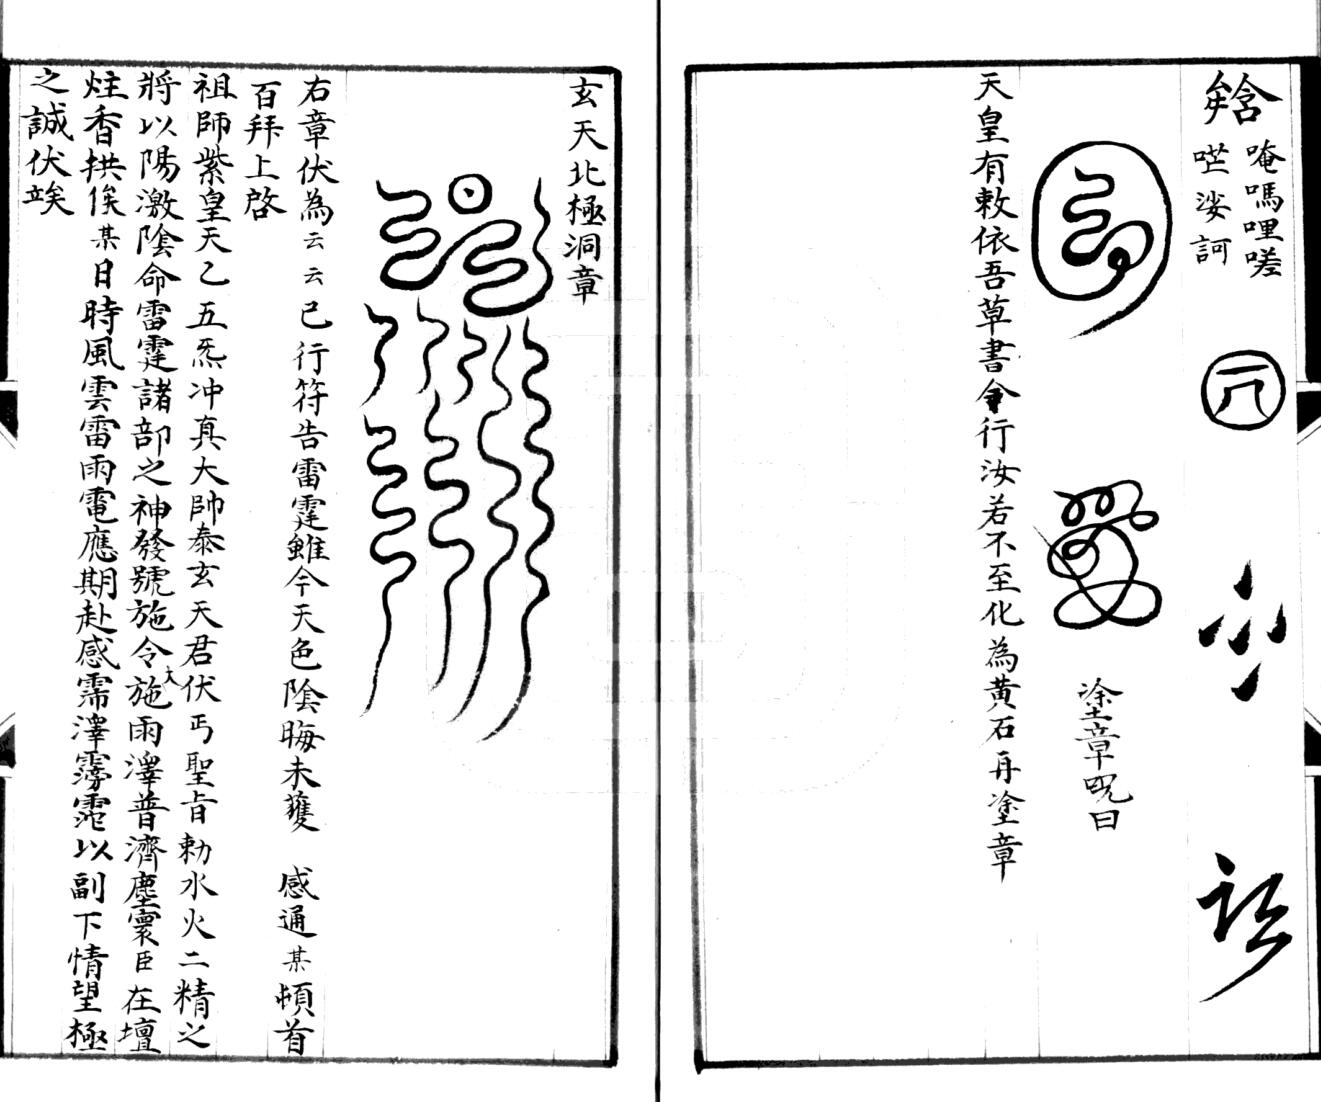 唵嗎哩嗟
呸娑訶
塗章呪曰
天皇有敕依吾草書令行汝若不至化為黃石再塗章
玄天北極洞章
右章伏為云云已行符告雷霆雖今天色陰晦未獲 感通某頓首
百拜上啓
祖師紫皇天乙五炁冲真大帥泰玄天君伏丐聖旨勅水火二精之
將以陽激陰命雷霆諸部之神發號施令大施雨澤普濟塵寰臣在壇
炷香拱俟某日時風雲雷雨電應期赴感霈澤霶霈以副下情望極
之誠伏竢